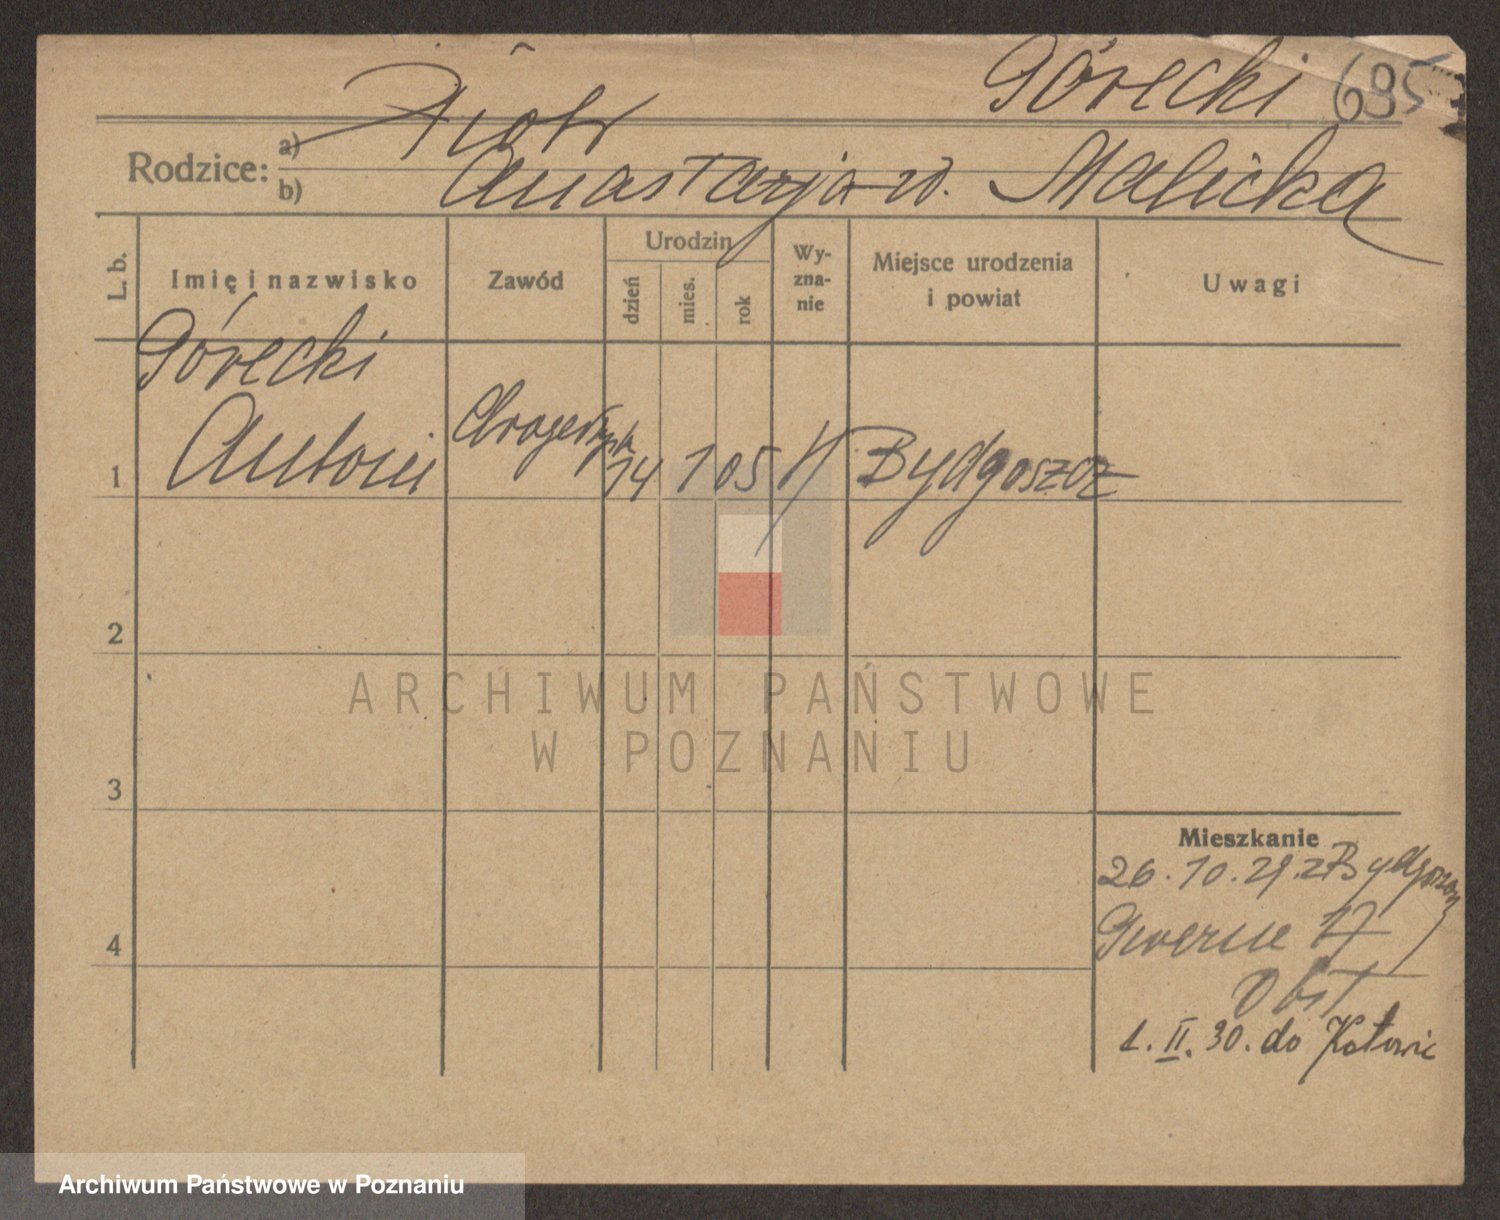 Górecki 695
Rodzice: a) Piotr
b) Anastazja w. Malicka
L. b. Imię i nazwisko Zawód Urodzin dzień mies. rok Wy-zna-nie Miejsce urodzenia i powiat Uwagi
Górecki
Antoni
1 14 1 05 Bydgoszcz
2
ARCHIWUM PAŃSTWOWE
W POZNANIU
3
Mieszkanie
26.10.29. z Bydgoszczy
4 17
Obst
1. II. 30. do Katowic
Archiwum Państwowe w Poznaniu